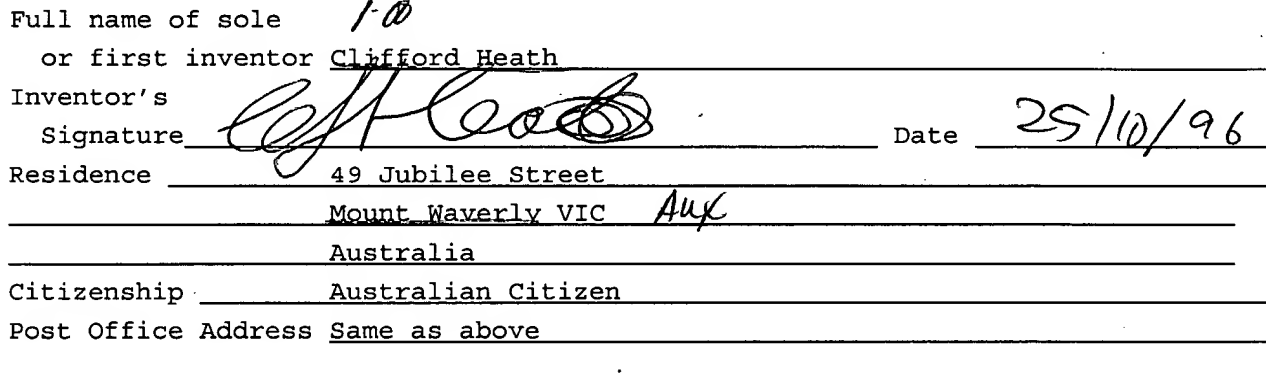 1-00
Full name of sole
or first inventor Clifford Heath
Inventor's
Signature Date 25/10/96
Residence 49 Jubilee Street
Mount Waverly VIC AUX
Australia
Citizenship Australian Citizen
Post Office Address Same as above